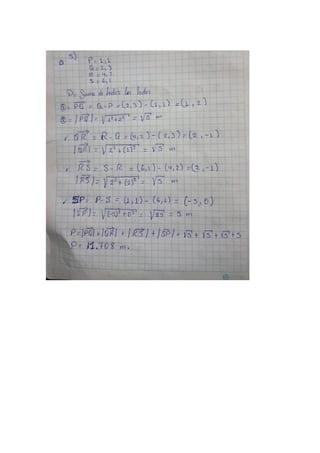 5)
P= 1,1
Q= 2,3
R= 4,2
S= 6,1
P= Suma de todos los lados
PQ = Q-P = (2,3)-(1,1) = (1,2)
|PQ| = √1²+2² = √5 m
QR = R-Q = (4,2)-(2,3) = (2,-1)
|QR| = √2²+(1)² = √5 m
RS = S-R = (6,1)-(4,2) = (2,-1)
|RS| = √2²+(1)² = √5 m
SP = P-S = (1,1)-(6,1) = (-5,0)
|SP| = √(-5)²+0² = √25 = 5 m
P=|PQ|+|QR|+|RS|+|SP|= √5+√5+√5+5
P= 11.708 m.